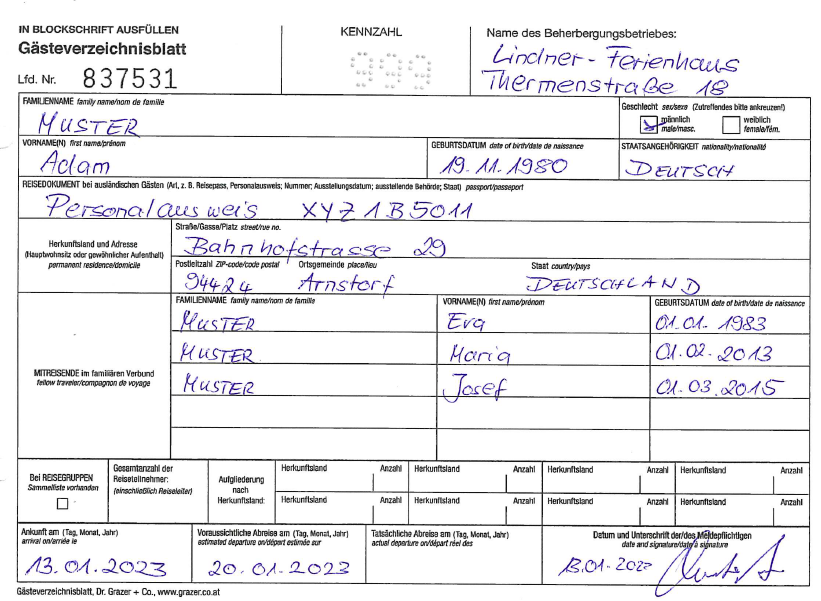 IN BLOCKSCHRIFT AUSFÜLLEN
Gästeverzeichnisblatt
Lfd. Nr. 837531
KENNZAHL
999
Name des Beherbergungsbetriebes:
Lindner - Ferienhaus
Thermenstraße 18
FAMILIENNAME family name/nom de famille
MUSTER
Geschlecht sex/sexe (Zutreffendes bitte ankreuzen!)
männlich male/masc.
weiblich female/fém.
VORNAME(N) first name/prénom
Adam
GEBURTSDATUM date of birth/date de naissance
19.11.1980
STAATSANGEHÖRIGKEIT nationality/nationalité
DEUTSCH
REISEDOKUMENT bei ausländischen Gästen (Art, z. B. Reisepass, Personalausweis; Nummer; Ausstellungsdatum; ausstellende Behörde; Staat) passport/passeport
Personalausweis XYZ1B5011
Herkunftsland und Adresse
(Hauptwohnsitz oder gewöhnlicher Aufenthalt)
permanent residence/domicile
Straße/Gasse/Platz street/rue no.
Bahnhofstrasse 29
Postleitzahl ZIP-code/code postal
94424
Ortsgemeinde place/lieu
Arnstorf
Staat country/pays
DEUTSCHLAND
MITREISENDE im familiären Verbund
fellow traveler/compagnon de voyage
FAMILIENNAME family name/nom de famille VORNAME(N) first name/prénom GEBURTSDATUM date of birth/date de naissance
MUSTER Eva 01.01.1983
MUSTER Maria 01.02.2013
MUSTER Josef 01.03.2015
Bei REISEGRUPPEN
Sammelliste vorhanden
Gesamtanzahl der
Reiseteilnehmer:
(einschließlich Reiseleiter)
Aufgliederung
nach
Herkunftsland:
Herkunftsland Anzahl Herkunftsland Anzahl Herkunftsland Anzahl Herkunftsland Anzahl
Herkunftsland Anzahl Herkunftsland Anzahl Herkunftsland Anzahl Herkunftsland Anzahl
Ankunft am (Tag, Monat, Jahr)
arrival on/arrivée le
13.01.2023
Voraussichtliche Abreise am (Tag, Monat, Jahr)
estimated departure on/départ estimée sur
20.01.2023
Tatsächliche Abreise am (Tag, Monat, Jahr)
actual departure on/départ réel des
Datum und Unterschrift der/des Meldepflichtigen
date and signature/date à signature
13.01-2023
Gästeverzeichnisblatt, Dr. Grazer + Co., www.grazer.co.at